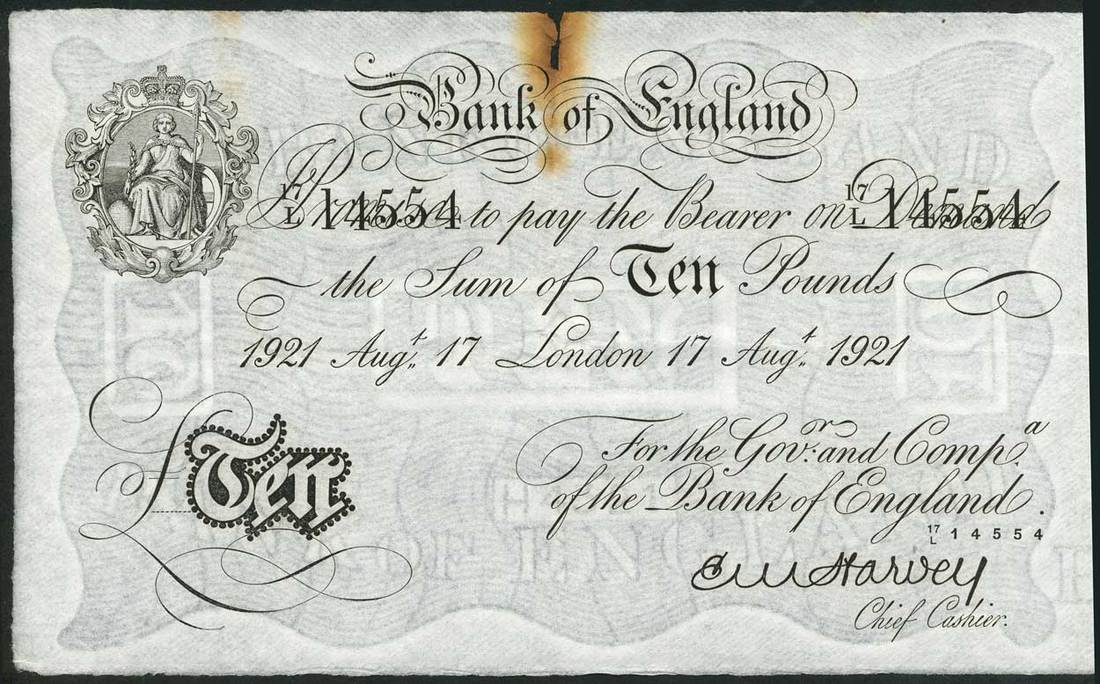 Bank of England
17
L 14554 to pay the Bearer on 17
L 14554
the Sum of Ten Pounds
1921 Augt. 17 London 17 Augt. 1921
£Ten
For the Govr. and Compa.
of the Bank of England.
17
L 14554
E M Harvey
Chief Cashier.